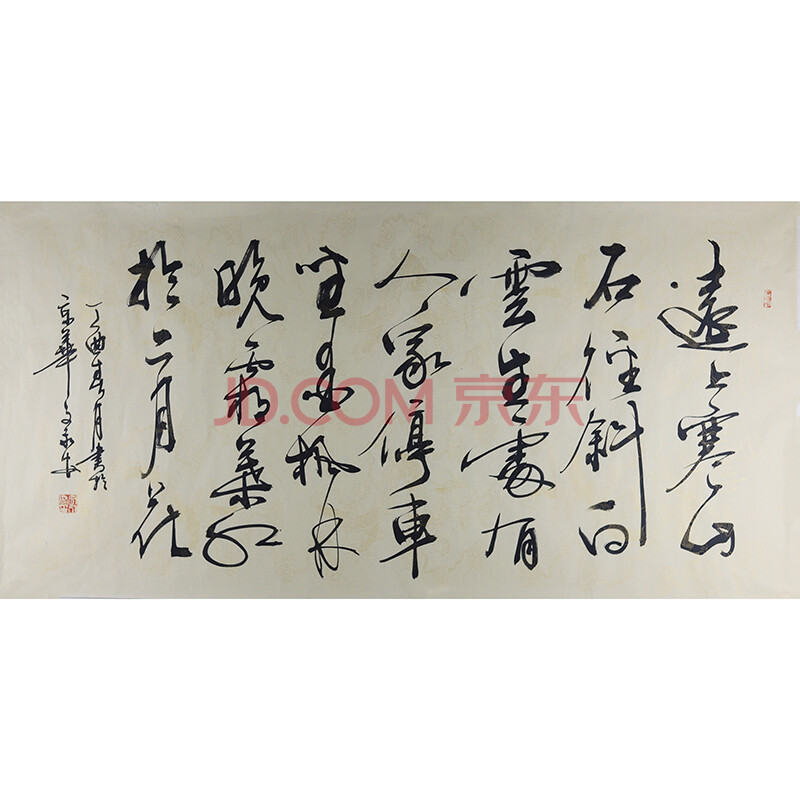 遠上寒山
石徑斜白
雲生處有
人家停車
坐愛楓林
晚霜葉紅
於二月花
丁酉春月書於
京華
JD.COM 京东